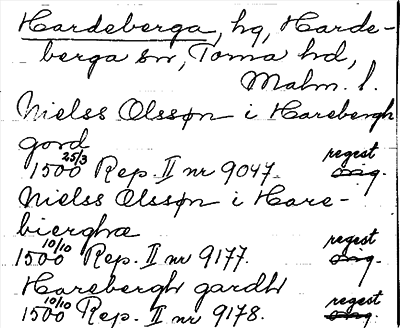 Hardeberga, hg, Harde-
berga sn, Torna hd,
Malm. l.
Nielss Olssøn i Harebergh
gord
1500 25/3 Rep. II nr 9047. regest orig.
Nielss Olssøn i Hare-
bierghæ
1500 10/10 Rep. II nr 9177. regest orig.
Harebergh gardh
1500 10/10 Rep. II nr 9178. regest orig.